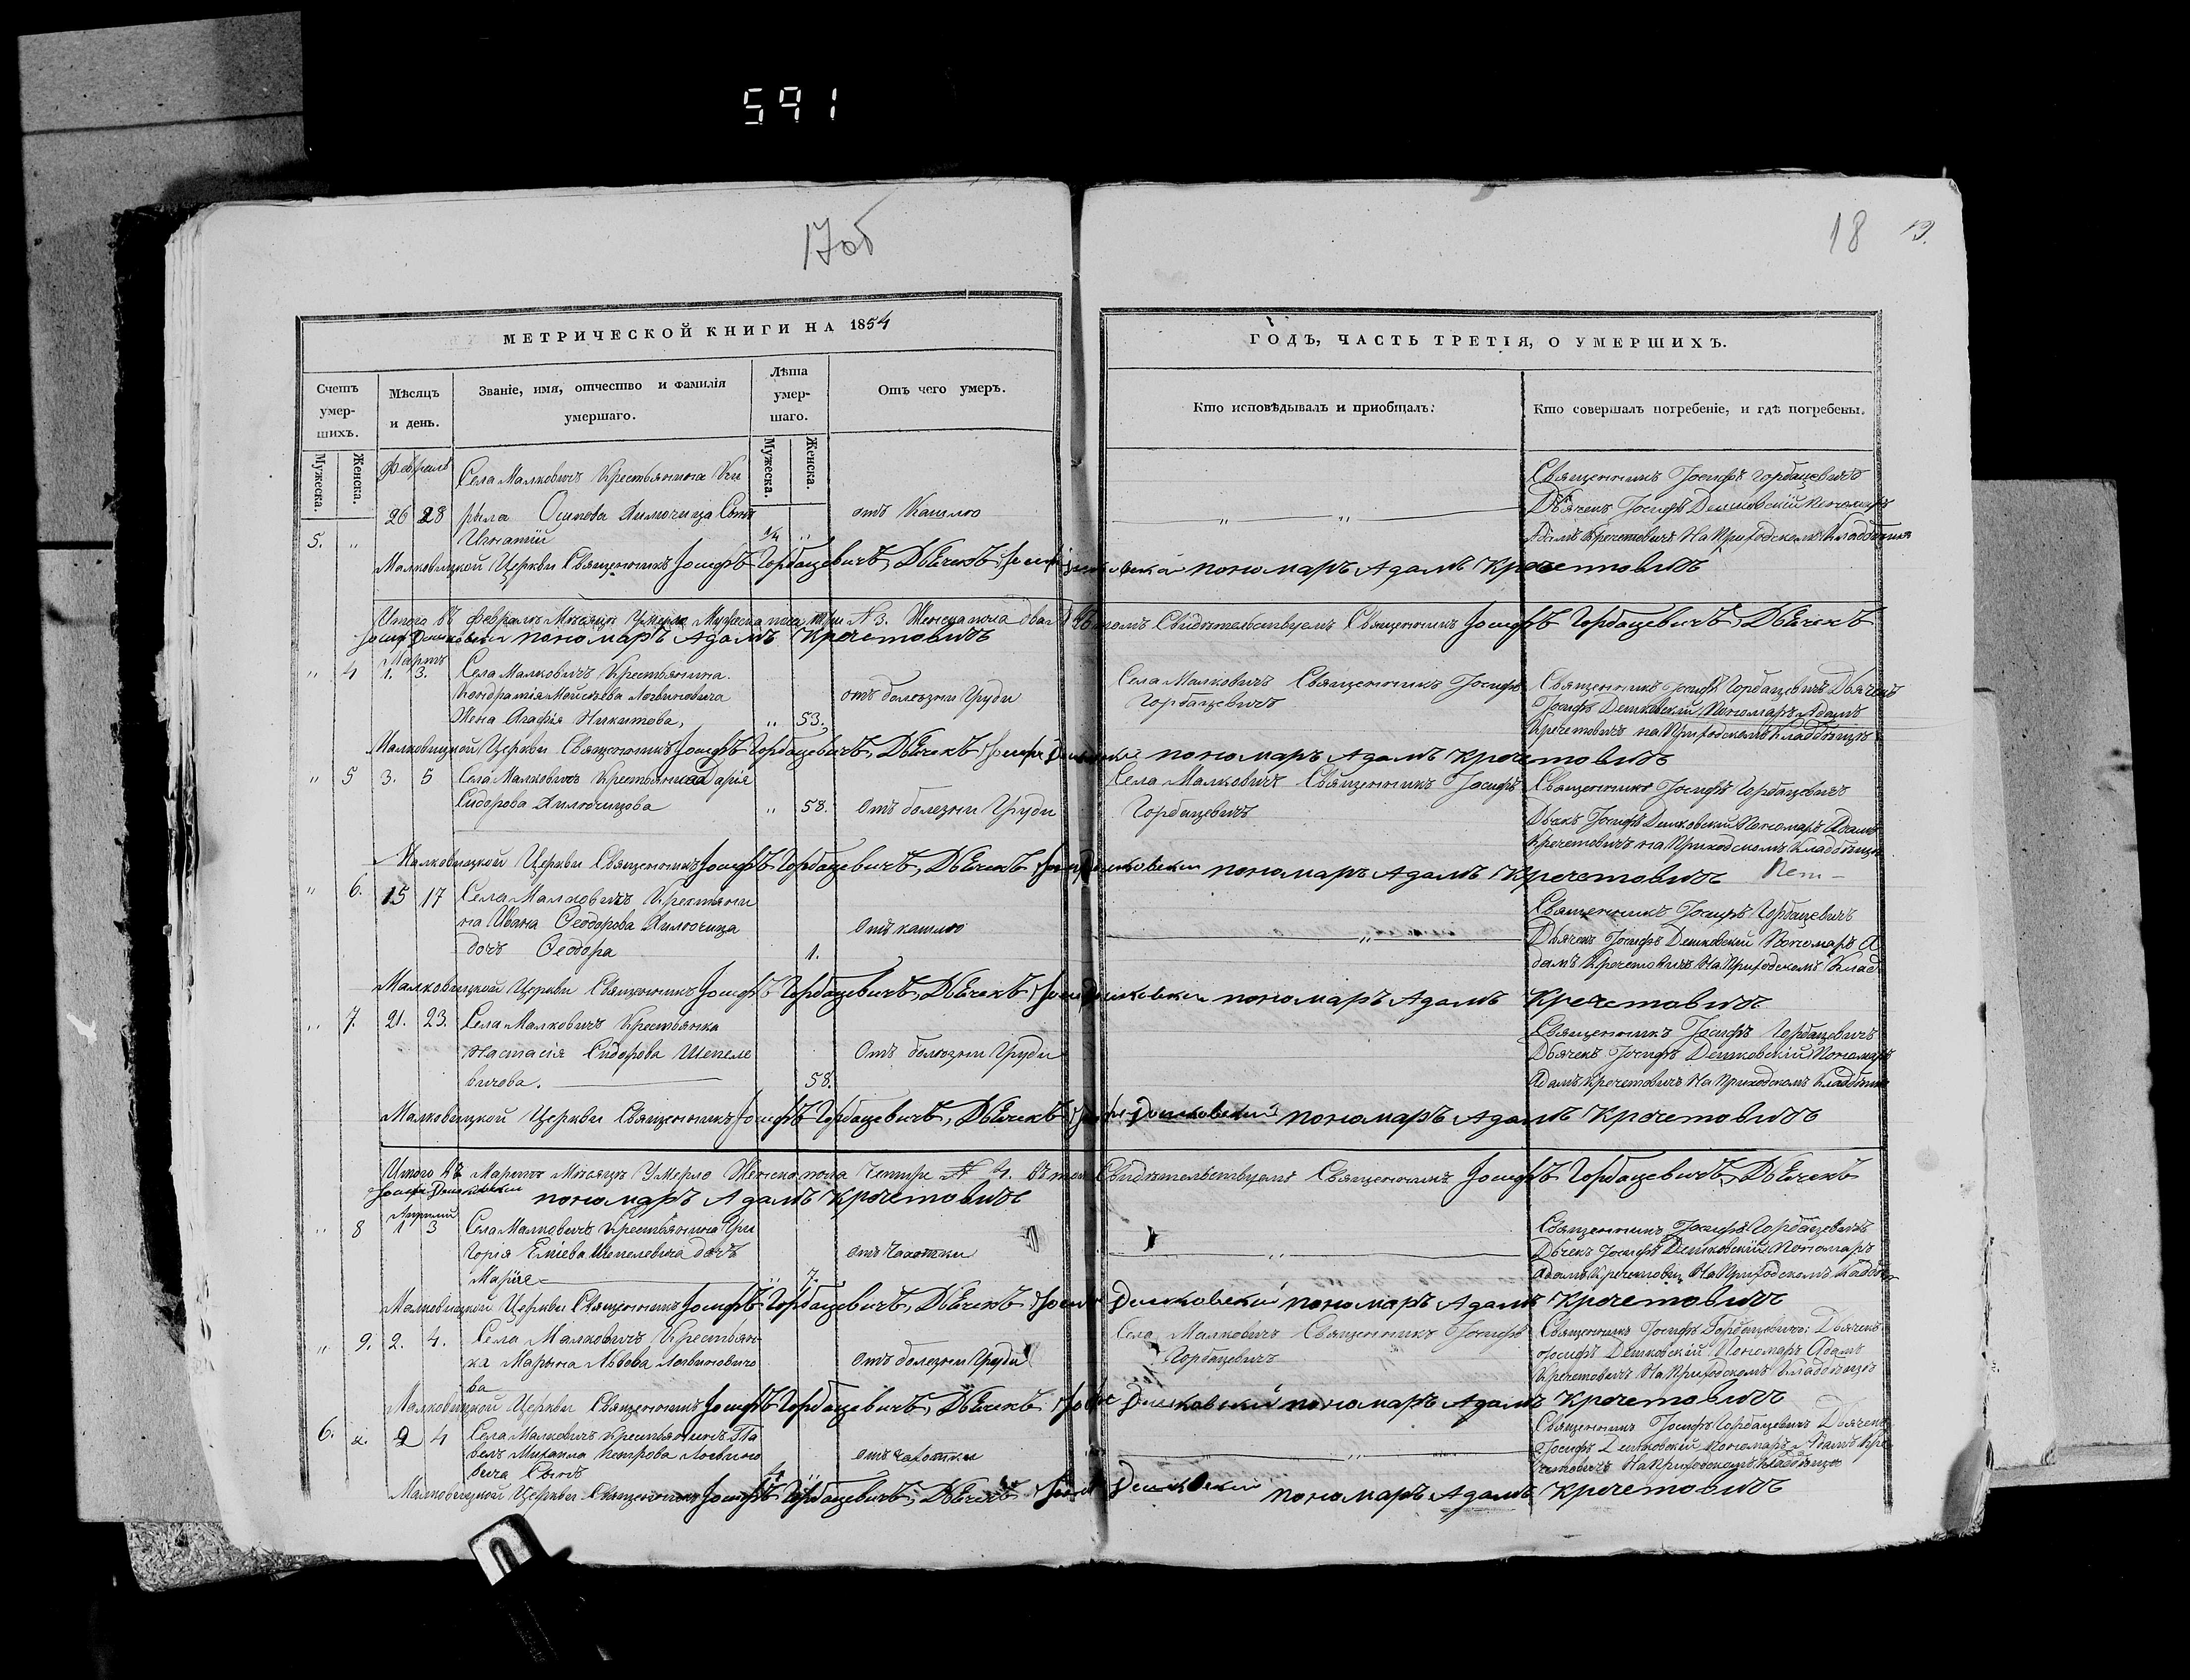 591
17об
18
19.
МЕТРИЧЕСКОЙ КНИГИ НА 1854
ГОДЪ, ЧАСТЬ ТРЕТІЯ, О УМЕРШИХЪ.
Счетъ умер-шихъ.
Мѣсяцъ и день.
Званіе, имя, отчество и фамилія умершаго.
Лѣта умер-шаго.
Отъ чего умеръ.
Кто исповѣдывалъ и приобщалъ:
Кто совершалъ погребеніе, и гдѣ погребены.
Мужеска.
Женска.
Мужеска.
Женска.
Февраль
Села Малковичъ Крестьянина Ки
26 28 рыла Осипова Хилючица Сынъ
отъ Кашлю
5. " Игнатій 1/4 "
Священникъ Іосифъ Горбацевичъ
Дьячекъ Іосифъ Дешковскій Пономарь
Адамъ Кречетовичъ На Приходскомъ Кладбищѣ
Малковицкой Церкви Священникъ Іосифъ Горбацевичъ, Дьячекъ Іосифъ Дешковскій пономарь Адамъ Кречетовичъ
Итого въ Февралѣ Мѣсяцѣ Умерло Мужеска пола три № 3. Женска пола два Въ томъ Свидѣтельствуемъ Священникъ Іосифъ Горбацевичъ, Дьячекъ
Іосифъ Дешковскій пономарь Адамъ Кречетовичъ
Мартъ
" 4 1. 3. Села Малковичъ Крестьянина
Кондратія Моисѣева Логвиновича
Жена Агафія Никитова, " 53.
отъ болезни Груди
Села Малковичъ Священникъ Іосифъ
Горбацевичъ
Священникъ Іосифъ Горбацевичъ Дьячекъ
Іосифъ Дешковскій Пономарь Адамъ
Кречетовичъ на Приходскомъ Кладбищѣ
Малковицкой Церкви Священникъ Іосифъ Горбацевичъ, Дьячекъ Іосифъ Дешковскій пономарь Адамъ Кречетовичъ
" 5 3. 5 Села Малковичъ Крестьянка Дарія
Сидорова Хилючицова " 58. Отъ болезни Груди
Села Малковичъ Священникъ Іосифъ
Горбацевичъ
Священникъ Іосифъ Горбацевичъ
Дьякъ Іосифъ Дешковскій Пономарь Адамъ
Кречетовичъ на Приходскомъ Кладбищѣ
Малковицкой Церкви Священникъ Іосифъ Горбацевичъ, Дьячекъ Іосифъ Дешковскій пономарь Адамъ Кречетовичъ
" 6. 15 17 Села Малковичъ Крестьяни
на Ивана Ѳеодорова Хилючица
дочь Ѳеодора 1.
Отъ кашлю
Священникъ Іосифъ Горбацевичъ
Дьячекъ Іосифъ Дешковскій Пономарь А
дамъ Кречетовичъ На Приходскомъ Клад
Малковицкой Церкви Священникъ Іосифъ Горбацевичъ, Дьячекъ Іосифъ Дешковскій пономарь Адамъ Кречетовичъ
" 7. 21. 23. Села Малковичъ Крестьянка
Настасія Сидорова Шепеле
вичова. 58.
Отъ болезни Груди
Священникъ Іосифъ Горбацевичъ
Дьячекъ Іосифъ Дешковскій Пономарь
Адамъ Кречетовичъ На Приходскомъ Кладбищѣ
Малковицкой Церкви Священникъ Іосифъ Горбацевичъ, Дьячекъ Іосифъ Дешковскій пономарь Адамъ Кречетовичъ
Итого въ Мартѣ Мѣсяцѣ Умерло Женска пола Четыре № 4. въ томъ Свидѣтельствуемъ Священникъ Іосифъ Горбацевичъ, Дьячекъ
Іосифъ Дешковскій пономарь Адамъ Кречетовичъ
Апрѣлій
" 8 1 3 Села Малковичъ Крестьянина Гри
горія Шепелевича дочь
Марія " 7.
отъ чахотки
Священникъ Іосифъ Горбацевичъ
Дьчекъ Іосифъ Дешковскій Пономарь
Адамъ Кречетович На Приходскомъ
Малковицкой Церкви Священникъ Іосифъ Горбацевичъ, Дьячекъ Іосифъ Дешковскій пономарь Адамъ Кречетовичъ
" 9. 2. 4. Села Малковичъ Крестьян
ка Марына Львова Логвиновичо
ва
Отъ болезни Груди
Села Малковичъ Священникъ Іосифъ
Горбацевичъ
Священникъ Іосифъ Горбацевичъ Дьячекъ
Іосифъ Дешковскій Пономарь Адамъ
Кречетовичъ На Приходскомъ Кладбищѣ
Малковицкой Церкви Священникъ Іосифъ Горбацевичъ, Дьячекъ Іосифъ Дешковскій пономарь Адамъ Кречетовичъ
6. 2 4 Села Малковичъ Крестьянинъ Па
велъ Михаила Петрова Логвино
вича Сынъ
отъ чахотки
Священникъ Іосифъ Горбацевичъ Дьячекъ
Іосифъ Дешковскій Пономарь Адамъ Кре
четовичъ На Приходскомъ Кладбищѣ
Малковицкой Церкви Священникъ Іосифъ Горбацевичъ, Дьячекъ Іосифъ Дешковскій пономарь Адамъ Кречетовичъ